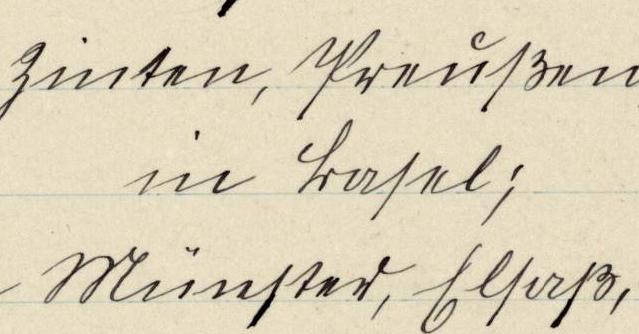 Zinten, Preußen
in Basel;
Münster, Elsaß,